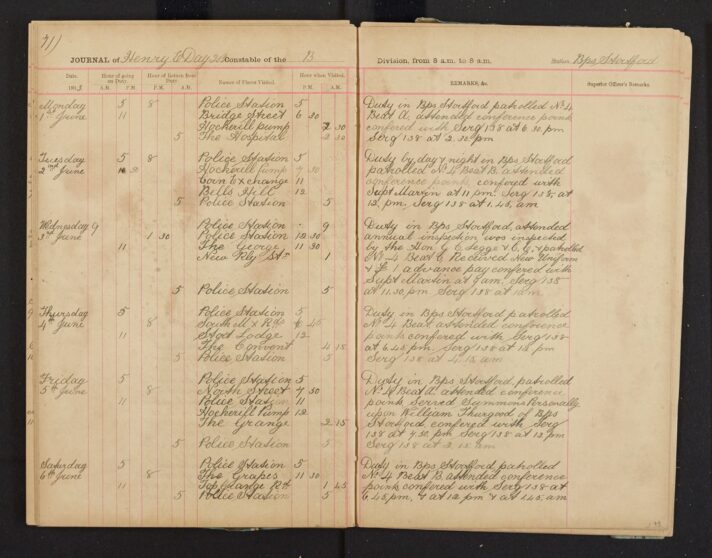 JOURNAL of Henry E Day 302 Constable of the B Division, from 8 a.m. to 8 a.m. Station Bps Stortford
Date. Hour of going on Duty. Hour of Return from Duty. Names of Places Visited. Hour when Visited. REMARKS, &c. Superior Officer's Remarks.
191 A.M. P.M. P.M. A.M. P.M. A.M.
Monday 5 8 Police Station 5 Duty in Bps Stortford patrolled No 4
1st June 11 Bridge Street 6 30 Beat A, attended conference point
Hockerill pump 2 30 confered with Serg 138 at 6.30 pm
5 The Hospital 2 30 Serg 138 at 2.30 pm
Tuesday 5 8 Police Station 5 Duty by day & night in Bps Stortford
2nd June Hockerill Pump 7 30 patrolled No 4 Beat B. attended
Corn Exchange 11 conference point, confered with
Bells Hill 12 Sept Martin at 11 pm. Serg 138, at
5 Police Station 5 12, pm, Serg 138 at 1.45, am
Wednesday 9 Police Station 9 Duty in Bps Stortford, attended
3rd June 1 30 Police Station 10 30 annual inspection was inspected
11 The George 11 30 by the Hon G C Legge & C. C, & patrolled
New Rly Stn 1 No 4 Beat C Received New Uniform
& 1 advance pay confered with
Supt Martin at 9 am. Serg 138
5 Police Station 5 at 11.30, pm Serg 138 at 1am.
Thursday 5 Police Station 5 Duty in Bps Stortford patrolled
4th June 8 Southmill x Rds 6 45 No 4 Beat attended conference
11 Stort Lodge 12 point confered with Serg 138
The Convent 4 15 at 6.45 pm, Serg 138 at 12 pm
5 Police Station 5 Serg 138 at 4.15 am
Friday 5 Police Station 5 Duty in Bps Stortford, patrolled
5th June 8 North Street 7 30 No 4 Beat A. attended conference
11 Police Station 11 point Served Summons Personally
Hockerill Pump 12 upon William Thurgood of Bps
The Grange 2 15 Stortford confered with Serg
138 at 7.30, pm Serg 138 at 12 pm
5 Police Station 5 Serg 138 at 2.15 am
Saturday 5 Police Station 5 Duty in Bps Stortford patrolled
6th June 8 The Grapes 11 30 No 4 Beat B attended conference
11 Top Grange Rd 1 45 point confered with Serg 138 at
5 Police Station 5 6.45, pm, & at 12 pm & at 1.45. am